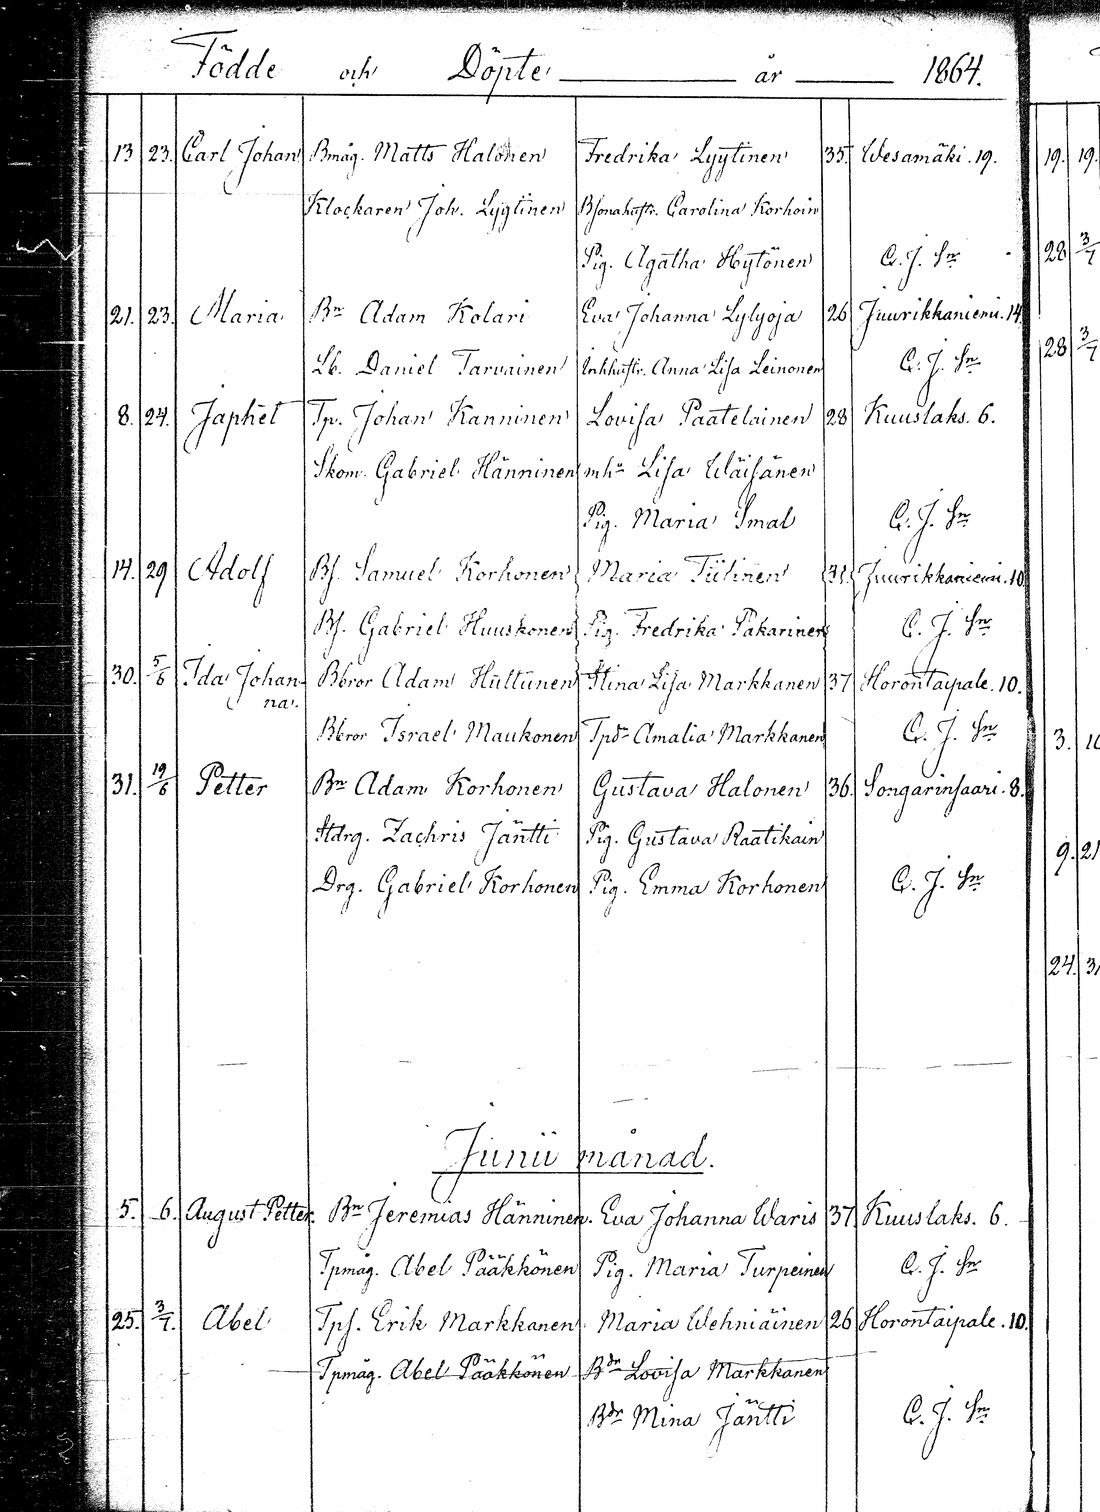 Födde och Döpte år 1864.
13 23. Carl Johan Bmåg. Matts Halonen Fredrika Lyytinen 35. Wesamäki. 19.
Klockaren Joh. Lyytinen Carolina Korhoin
Pig. Agatha Hytönen C. J. Sn
21. 23. Maria Bn Adam Kolari Eva Johanna Lylyoja 26 Juurikkaniemi. 14
Lb. Daniel Tarvainen Inhhustr. Anna Lisa Leinonen C. J. Sn
8. 24. Japhet Tp. Johan Kanninen Lovisa Paatelainen 28 Kuuslaks. 6.
Skom. Gabriel Hänninen mhu Lisa Wäisänen
Pig. Maria Smal C. J. Sn
14. 29 Adolf Bs. Samuel Korhonen Maria Tiilinen 31. Juurikkaniemi. 10
Bs. Gabriel Huuskonen Pig. Fredrika Pakarinen C. J. Sn
30. 5/6 Ida Johan-
na. Bbror Adam Hultunen Stina Lisa Markkanen 37 Horontaipale. 10.
Bbror Israel Maukonen Tpdr Amalia Markkanen C. J. Sn
31. 19/6 Petter Bn Adam Korhonen Gustava Halonen 36. Songarinsaari. 8.
Stdrg. Zachris Jäntti Pig. Gustava Raatikain
Drg. Gabriel Korhonen Pig. Emma Korhonen C. J. Sn
Junii månad.
5. 6. August Petter. Bn Jeremias Hänninen. Eva Johanna Waris 37 Kuuslaks. 6.
Tpmåg. Abel Pääkkönen Pig. Maria Turpeinen C. J. Sn
25. 3/7. Abel Tps. Erik Markkanen Maria Wehniäinen 26 Horontaipale. 10.
Tpmåg. Abel Pääkkönen Bdr Lovisa Markkanen
Bdr Mina Jäntti C. J. Sn
19. 19.
28 3/7
28 3/7
3.
9. 21
24.